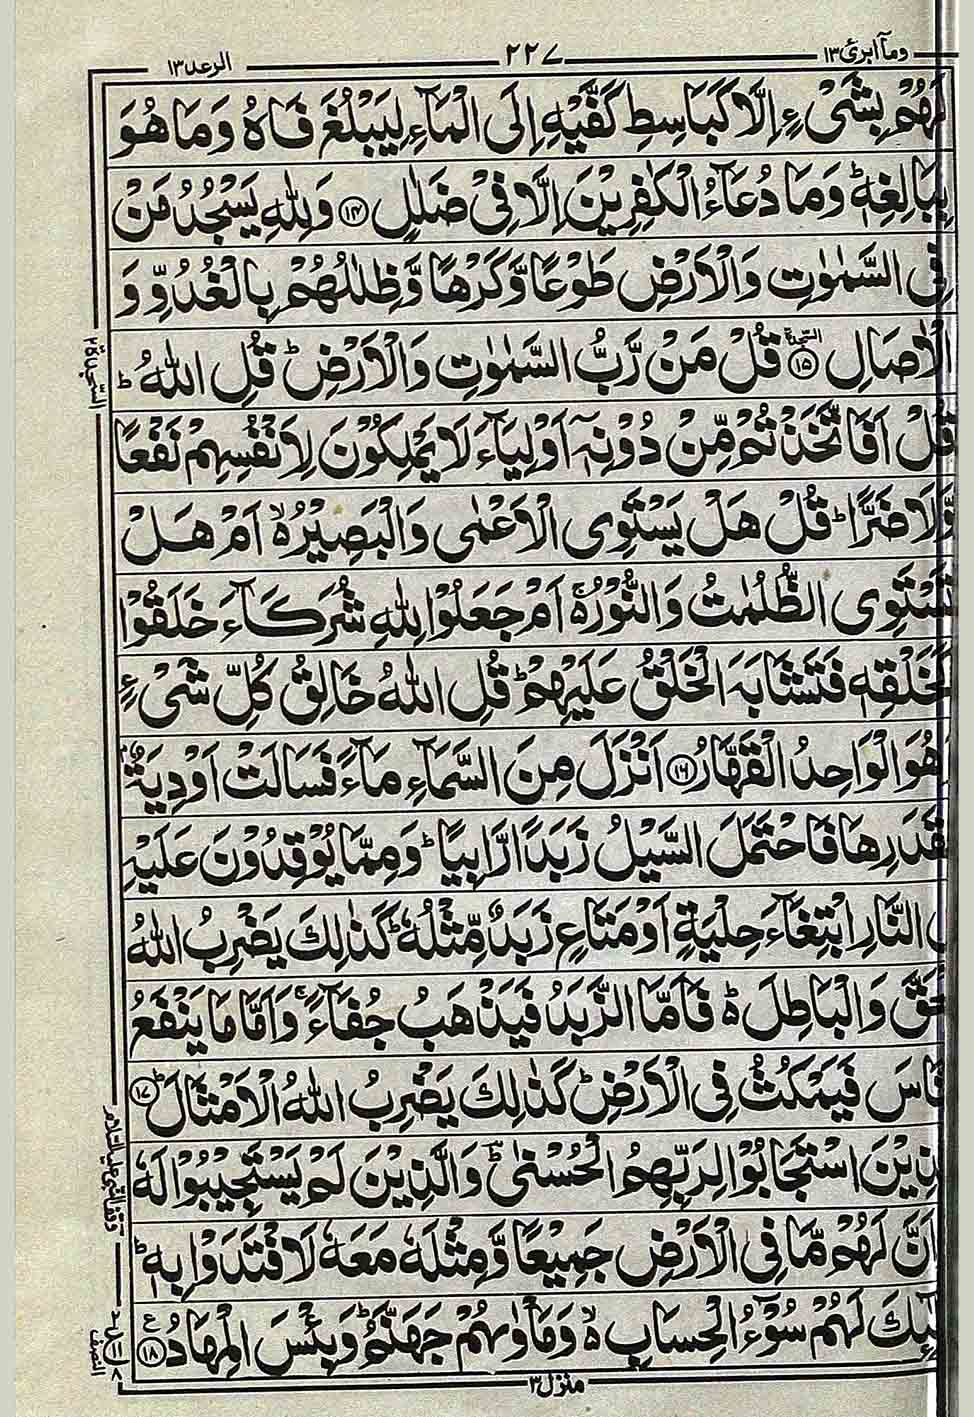 وما ابرئ ١٣ ٢٢٧ الرعد ١٣
لَهُمْ بِشَیْءٍ اِلَّا كَبَاسِطِ كَفَّیْهِ اِلَى الْمَآءِ لِیَبْلُغَ فَاهُ وَمَا هُوَ
بِبَالِغِهٖ ؕ وَمَا دُعَآءُ الْكٰفِرِیْنَ اِلَّا فِیْ ضَلٰلٍ ﴿۱۴﴾ وَلِلّٰهِ یَسْجُدُ مَنْ
فِی السَّمٰوٰتِ وَالْاَرْضِ طَوْعًا وَّكَرْهًا وَّظِلٰلُهُمْ بِالْغُدُوِّ وَ
الْاٰصَالِ ﴿۱۵﴾ السجدة قُلْ مَنْ رَّبُّ السَّمٰوٰتِ وَالْاَرْضِ ؕ قُلِ اللّٰهُ ؕ
قُلْ اَفَاتَّخَذْتُمْ مِّنْ دُوْنِهٖۤ اَوْلِیَآءَ لَا یَمْلِكُوْنَ لِاَنْفُسِهِمْ نَفْعًا
وَّلَا ضَرًّا ؕ قُلْ هَلْ یَسْتَوِی الْاَعْمٰى وَالْبَصِیْرُ ۙ اَمْ هَلْ
تَسْتَوِی الظُّلُمٰتُ وَالنُّوْرُ ۚ اَمْ جَعَلُوْا لِلّٰهِ شُرَكَآءَ خَلَقُوْا
كَخَلْقِهٖ فَتَشَابَهَ الْخَلْقُ عَلَیْهِمْ ؕ قُلِ اللّٰهُ خَالِقُ كُلِّ شَیْءٍ
هُوَ الْوَاحِدُ الْقَهَّارُ ﴿۱۶﴾ اَنْزَلَ مِنَ السَّمَآءِ مَآءً فَسَالَتْ اَوْدِیَةٌۢ
بِقَدَرِهَا فَاحْتَمَلَ السَّیْلُ زَبَدًا رَّابِیًا ؕ وَمِمَّا یُوْقِدُوْنَ عَلَیْهِ
النَّارِ ابْتِغَآءَ حِلْیَةٍ اَوْ مَتَاعٍ زَبَدٌ مِّثْلُهٗ ؕ كَذٰلِكَ یَضْرِبُ اللّٰهُ
حَقَّ وَالْبَاطِلَ ؕ۬ فَاَمَّا الزَّبَدُ فَیَذْهَبُ جُفَآءً ۚ وَاَمَّا مَا یَنْفَعُ
اسَ فَیَمْكُثُ فِی الْاَرْضِ ؕ كَذٰلِكَ یَضْرِبُ اللّٰهُ الْاَمْثَالَ ﴿۱۷﴾ؕ
ذِیْنَ اسْتَجَابُوْا لِرَبِّهِمُ الْحُسْنٰى ؕؔ وَالَّذِیْنَ لَمْ یَسْتَجِیْبُوْا لَهٗ
اَنَّ لَهُمْ مَّا فِی الْاَرْضِ جَمِیْعًا وَّمِثْلَهٗ مَعَهٗ لَافْتَدَوْا بِهٖ ؕ
ئِكَ لَهُمْ سُوْٓءُ الْحِسَابِ ۙ۬ وَمَاْوٰىهُمْ جَهَنَّمُ ؕ وَبِئْسَ الْمِهَادُ ﴿۱۸﴾
منزل ٣
السجدة ٢
وقف النبي عليه السلام
النصف